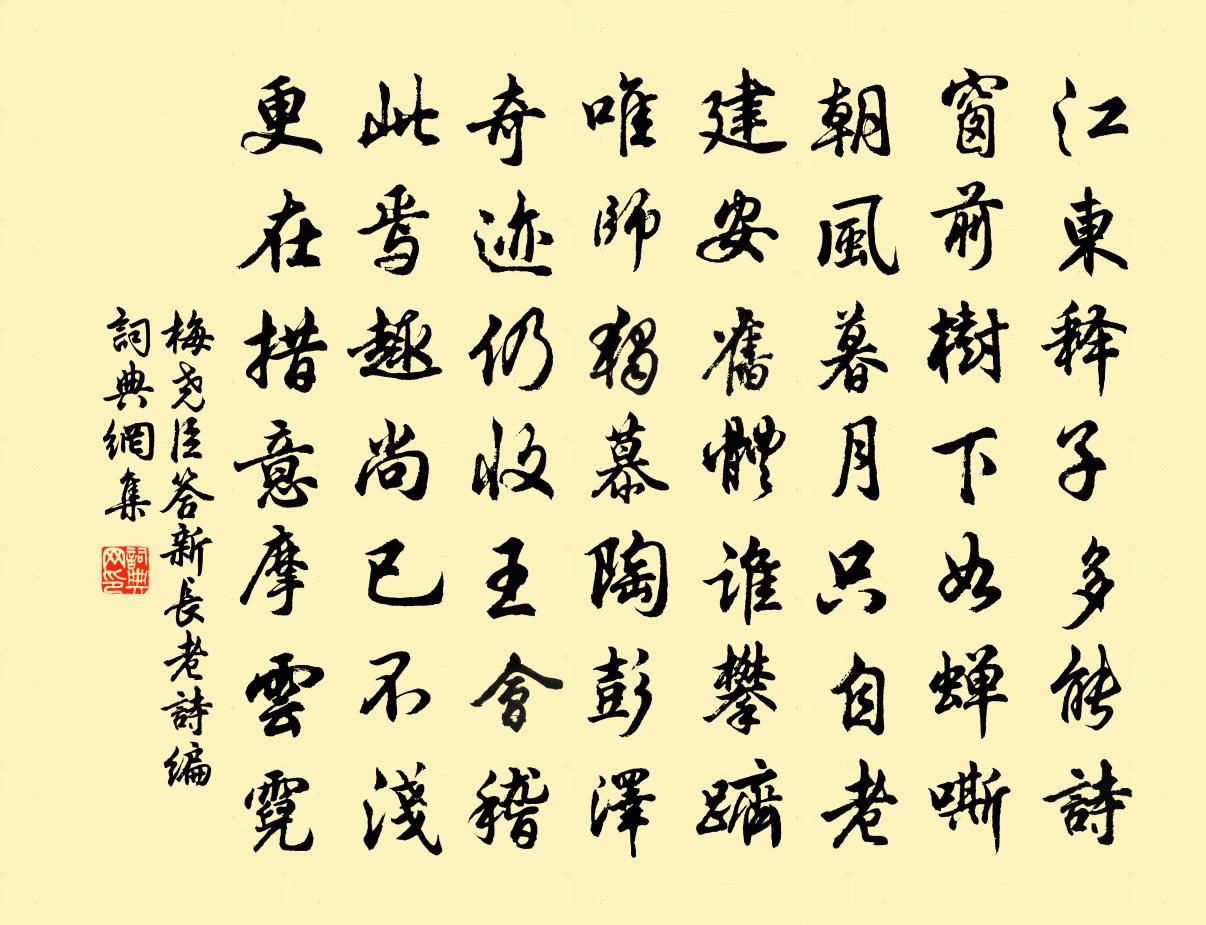 江東释子多能詩
窗前樹下如蝉嘶
朝風暮月只自老
建安舊體誰攀躋
唯師獨慕陶彭澤
奇迹仍收王會稽
此焉趣尚已不淺
更在措意摩雲霓
梅尧臣答新長老詩编
詞典網集
詞典网印